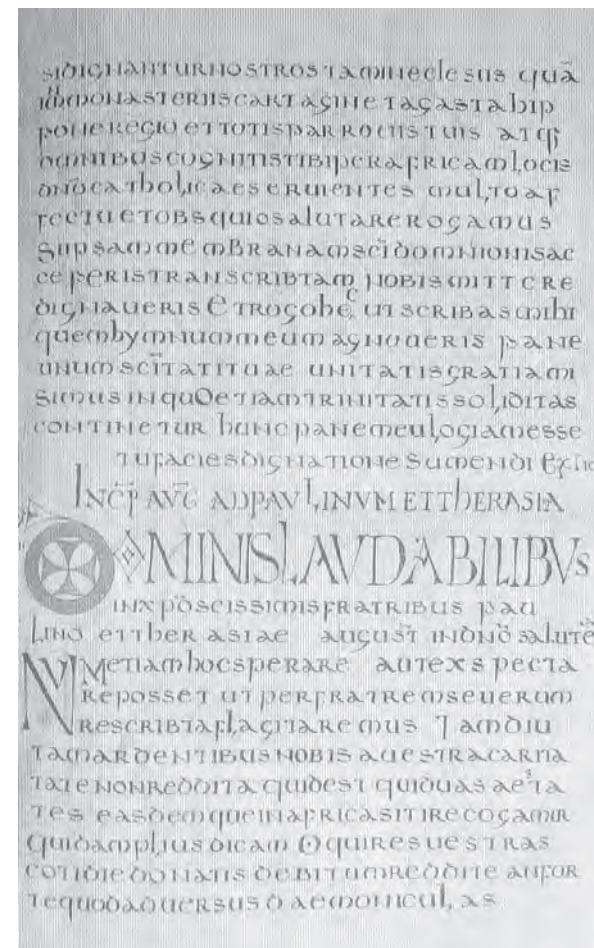 sidignanturnostrostaminecle siis quā
ībmonasteriiscartagine tagasta hip
poneregio ettotisparrociistuis atq;
omnibuscognitistibiperafricamlocis
dnōcatholicaeseruientes multoaf
fectuetobsquiosalutarerogamus
Sūpsammembranamscīdomnionisac
ceperistranscribtam nobismittere
dignaueris Etrogohec utscribasmihi
quemhymnummeumagnoueris pane
unumscītatituae unitatisgratiami
simusinquoetiamtrinitatissoliditas
continetur huncpanemeulogiamesse
tufaciesdignationesumendi Exfic
INCP̄ AVG̅ ADPAVLINVMETTHERASIA
DOMINISLAVDABILIBVs
inxp̄oscissimisfratribus pau
lino ettherasiae august̄ indnōsalutē
NVMetiamhocsperare autexspecta
reposset utperfratremseuerum
rescribtaflagitaremus Tamdiu
tamardentibusnobis auestracarita
tatenonreddita quidest quidduas aesta
tes easdemqueinafricasitirecogamur
quidampliusdicam Oquiresuestras
cotidiedonatis debitumreddite anfor
tequodaduersus daemonicul, as